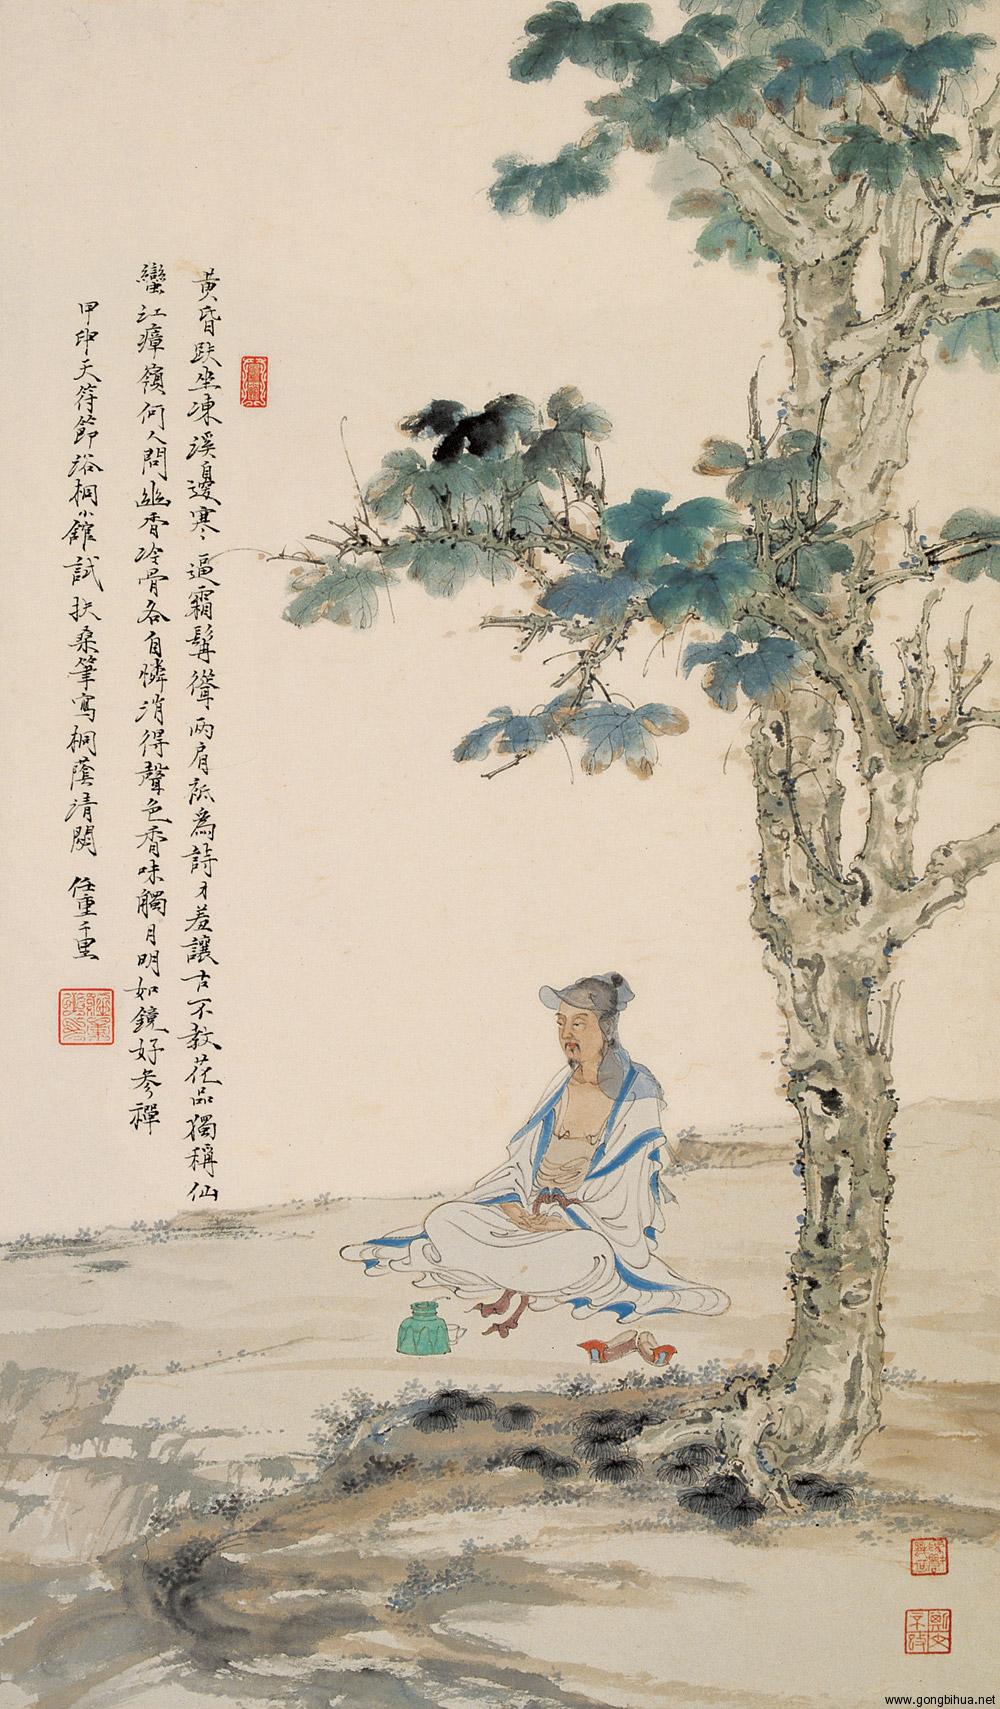 黄昏趺坐凍溪邊寒逼霜髯聳兩肩祇為詩才羞讓古不教花品獨稱仙
蠻江瘴嶺何人問幽香冷骨各自憐消得聲色香味觸月明如鏡好參禪
甲申天符節浴桐小館試扶桑筆寫桐蔭清閟 任重千里
www.gongbihua.net